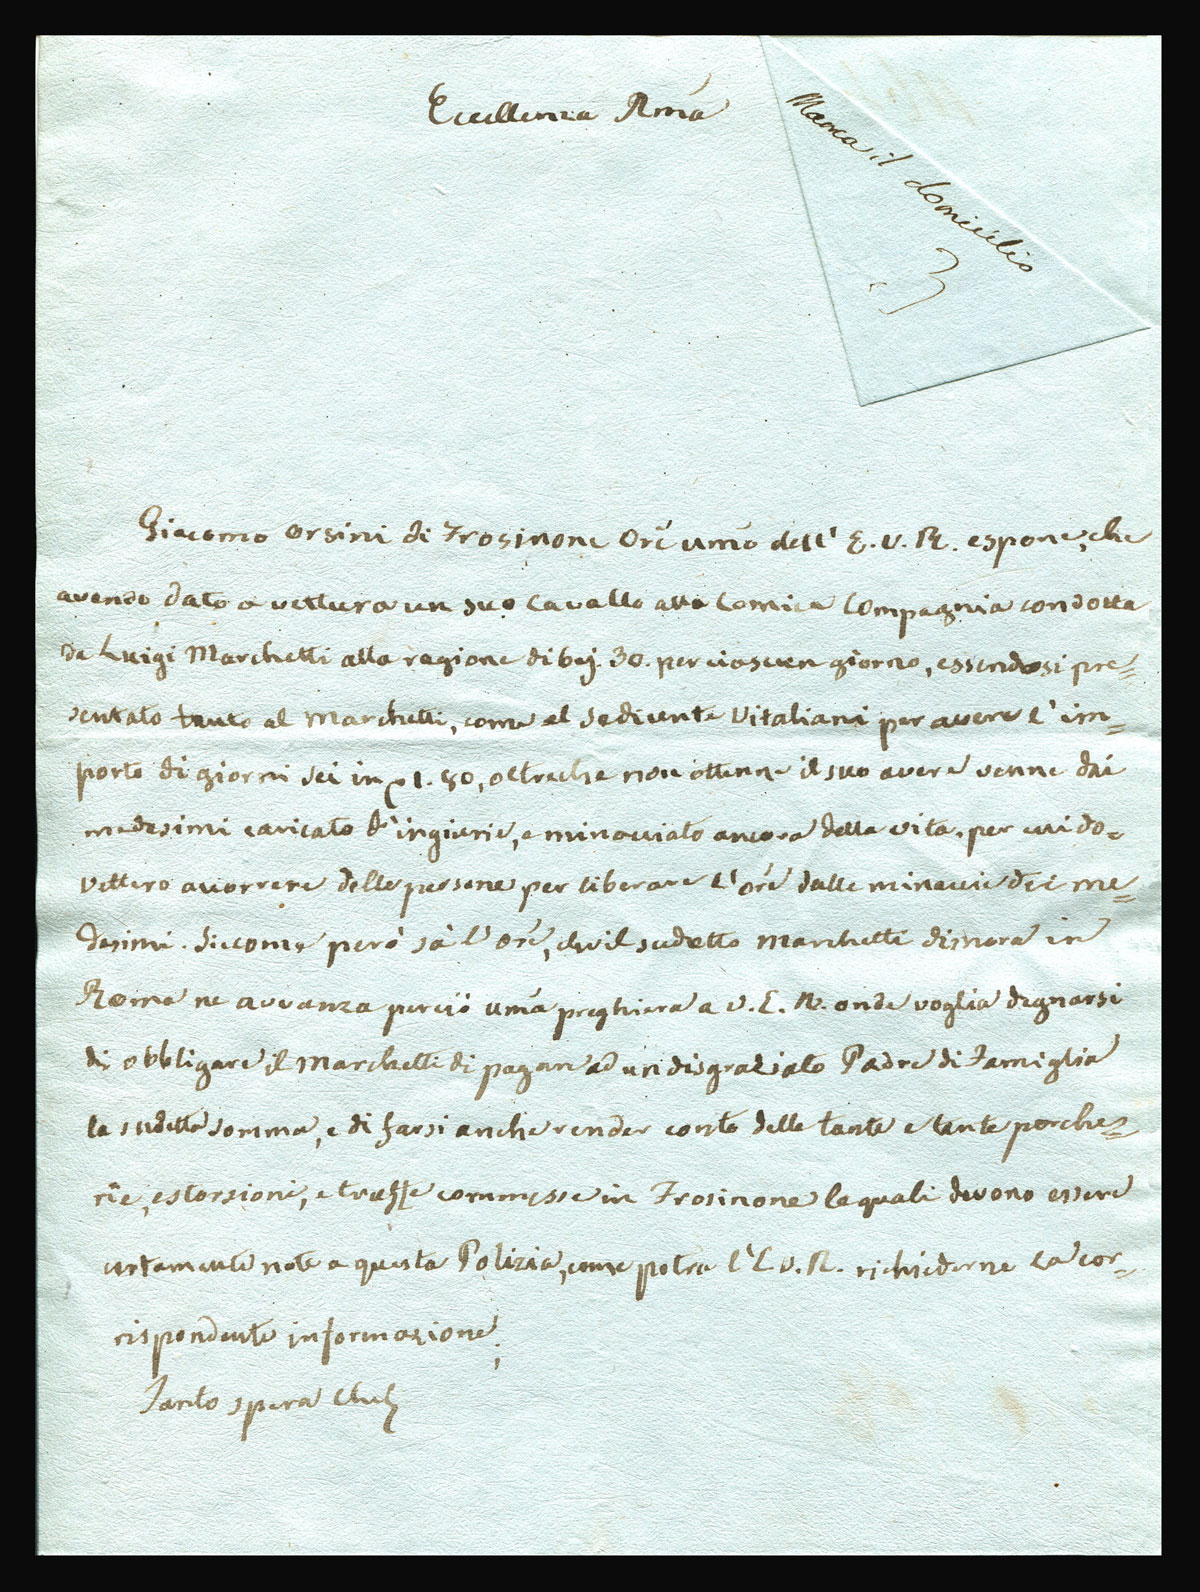 Eccellenza Rma
Manca il domicilio
Giacomo Orsini di Frosinone Ore umo dell' E. V. R. espone, che
avendo dato a vettura un suo Cavallo alla Comica Compagnia condotta
da Luigi Marchetti alla ragione di baj. 30. per ciascun giorno, essendosi pre=
sentato tanto al Marchetti, come al sedicente Vitaliani per avere l' im=
porto di giorni sei in 1. 80, oltreche non ottenne il suo avere venne dai
medesimi caricato d' ingiurie, e minacciato ancora della vita, per cui do=
vettero accorrere delle persone per liberare l' Ore dalle minaccie dei me=
desimi. Siccome però sà l' Ore, che il sudetto Marchetti dimora in
Roma ne avvanza perciò uma preghiera a V. E. R. onde voglia degnarsi
di obbligare il Marchetti di pagare ad un disgraziato Padre di Famiglia
la sudetta somma, e di farsi anche render conto delle tante e tante porche=
rie, estorsioni, e truffe commesse in Frosinone le quali devono essere
certamente note a questa Polizia, come potra l' E. V. R. richiederne la cor=
rispondente informazione.
Tanto spera Che